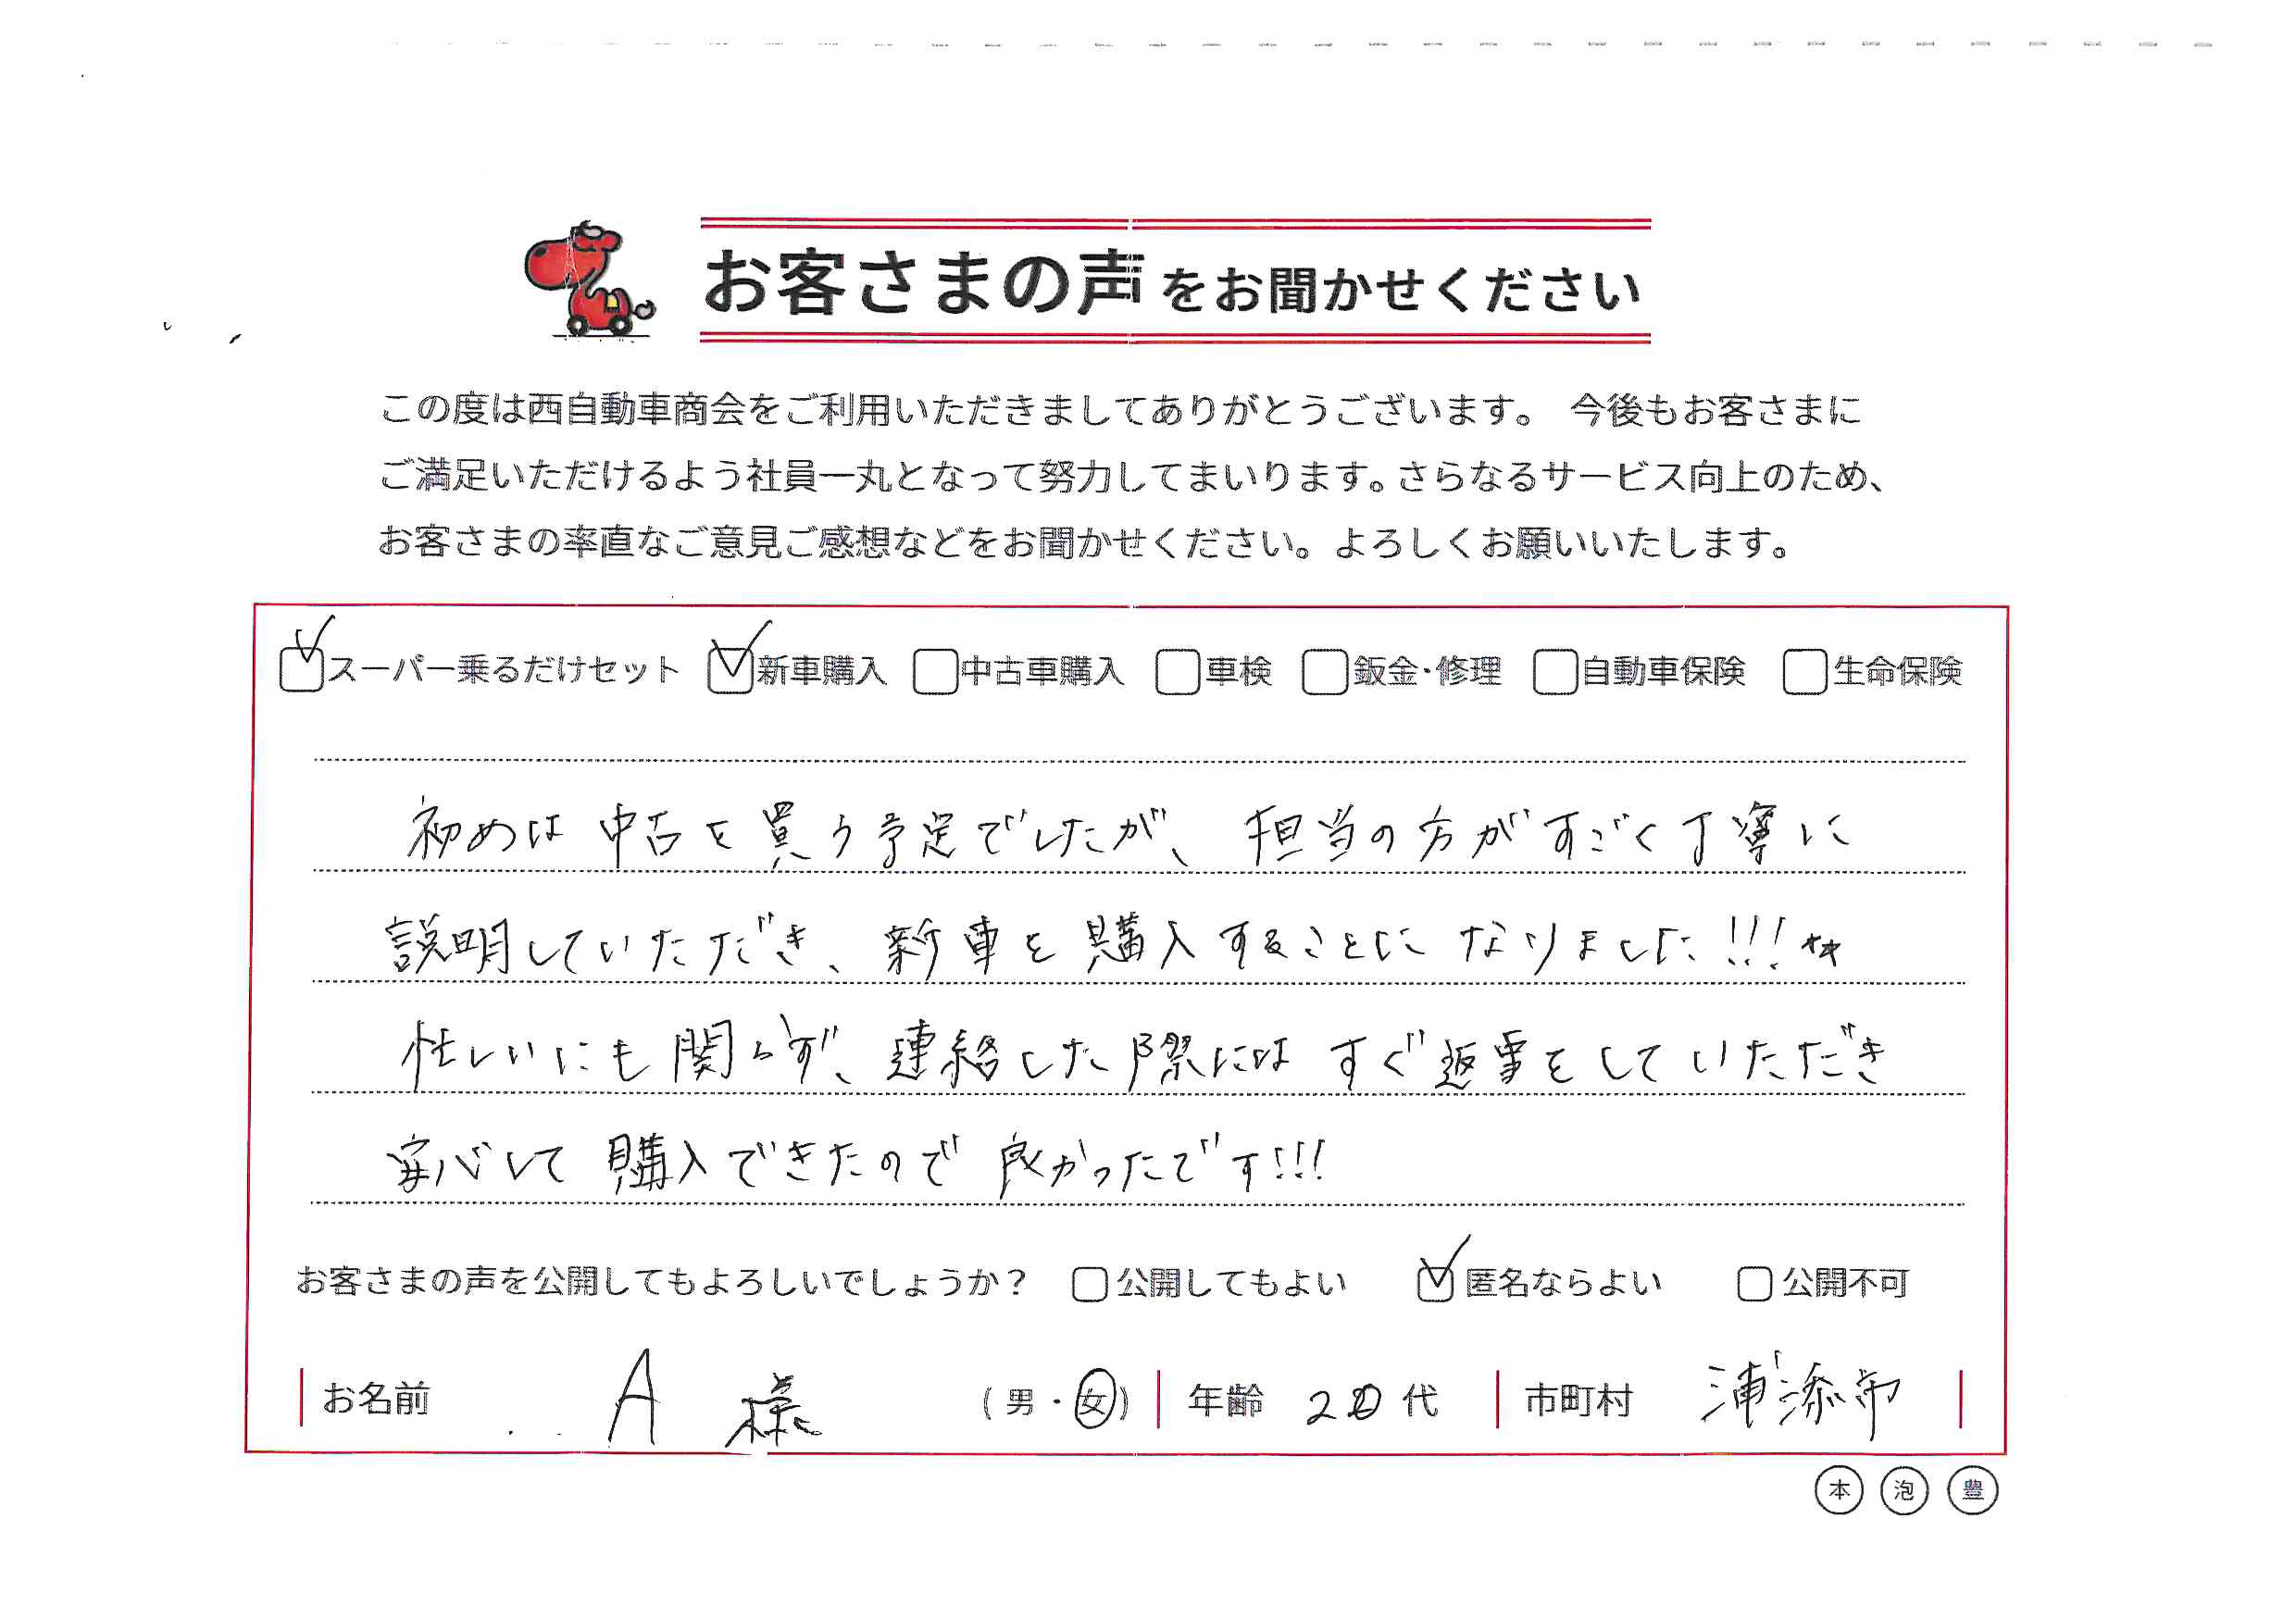 お客さまの声をお聞かせください
この度は西自動車商会をご利用いただきましてありがとうございます。 今後もお客さまに
ご満足いただけるよう社員一丸となって努力してまいります。さらなるサービス向上のため、
お客さまの率直なご意見ご感想などをお聞かせください。よろしくお願いいたします。
スーパー乗るだけセット 新車購入 中古車購入 車検 鈑金・修理 自動車保険 生命保険
初めは中古を買う予定でしたが、担当の方がすごく丁寧に
説明していただき、新車を購入することになりました!!!☆☆
忙しいにも関らず、連絡した際にはすぐ返事をしていただき
安心して購入できたので良かったです!!!
お客さまの声を公開してもよろしいでしょうか？ 公開してもよい 匿名ならよい 公開不可
お名前 A 様 (男・女) 年齢 20代 市町村 浦添市
本 泡 豊